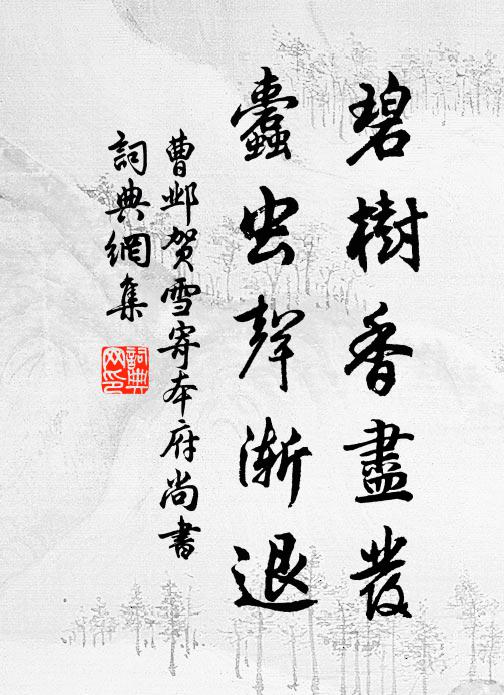 碧樹香盡發
蠹虫聲漸退
曹邺贺雪寄本府尚書
詞典網集
詞典网印